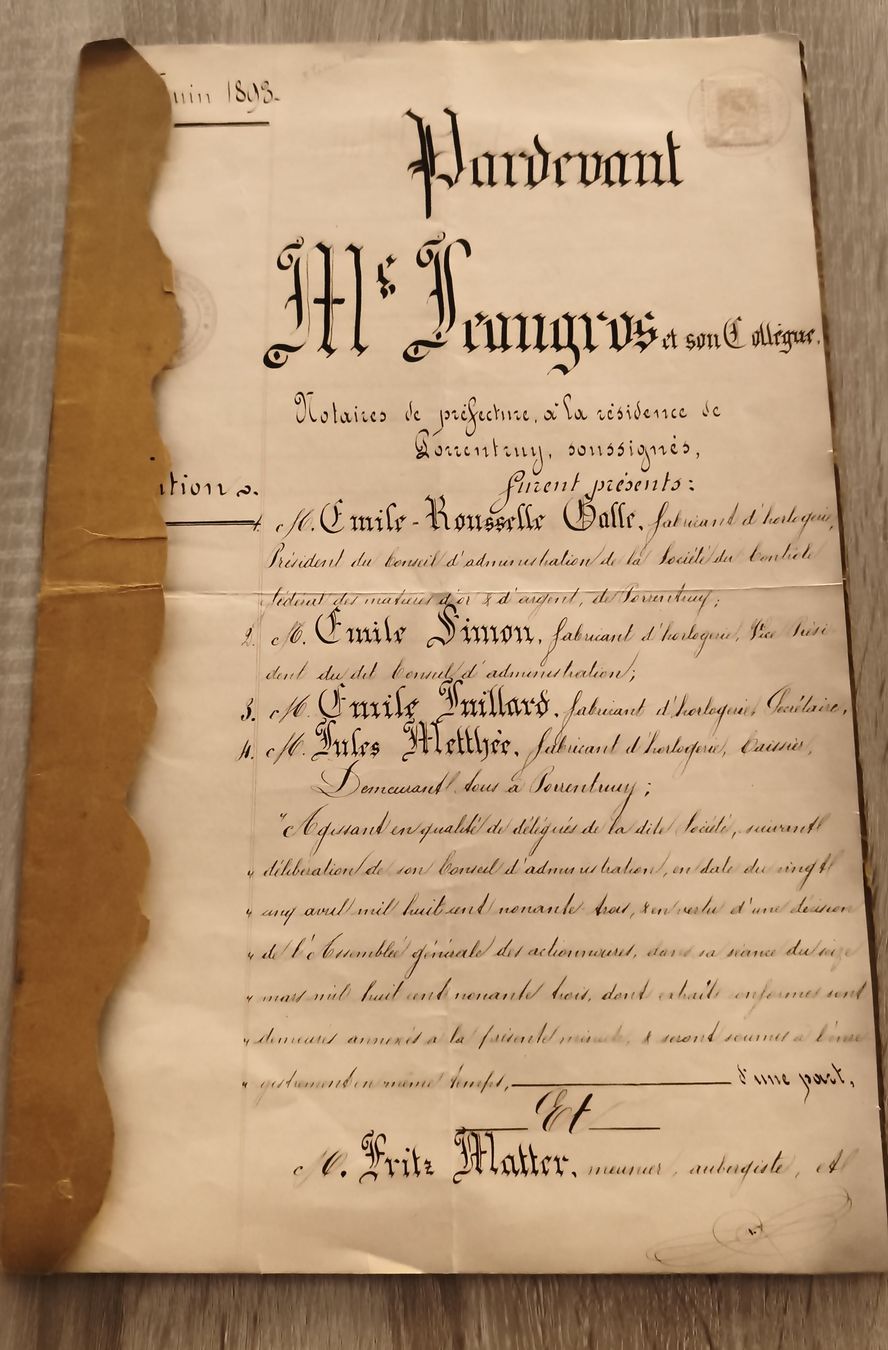 uin 1893.
Pardevant
Me Jeangros et son Collègue.
Notaires de préfecture, à la résidence de
Porrentruy, soussignés,
ition s.
furent présents:
1. M. Emile-Rousselle Galle, fabricant d'horlogerie,
Président du Conseil d'administration de la Société du Contrôle
fédéral des matières d'or & d'argent, de Porrentruy;
2. M. Emile Simon, fabricant d'horlogerie, Vice Prési
dent du dit Conseil d'administration;
3. M. Emile Juillard, fabricant d'horlogerie, Secrétaire,
4. M. Jules Metthée, fabricant d'horlogerie, Caissier,
Demeurant tous à Porrentruy;
"Agissant en qualité de délégués de la dite Société, suivant
" délibération de son Conseil d'administration, en date du vingt
" cinq avril mil huit cent nonante trois, & en vertu d'une décision
" de l'Assemblée générale des actionnaires, dans sa séance du seize
" mars mil huit cent nonante trois, dont extraits conformes sont
" demeurés annexés à la présente minute, & seront soumis à l'enre
" gistrement en même temps, d'une part,
Et
M. Fritz Matter, meunier, aubergiste, et